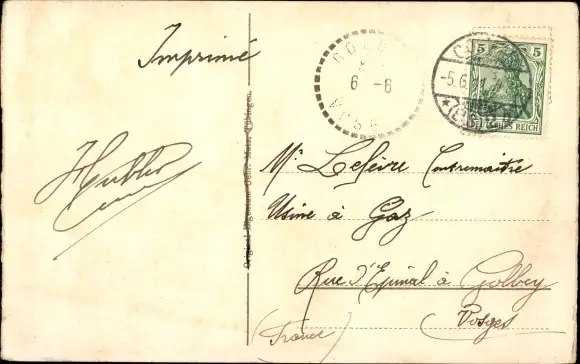 Imprimé
Hubler
Mr Lefèvre Contremaitre
Usine à Gaz
Rue d'Epinal à Golbey
Vosges
(France)
5 5
DEUTSCHES REICH
6 -6
-5.6.